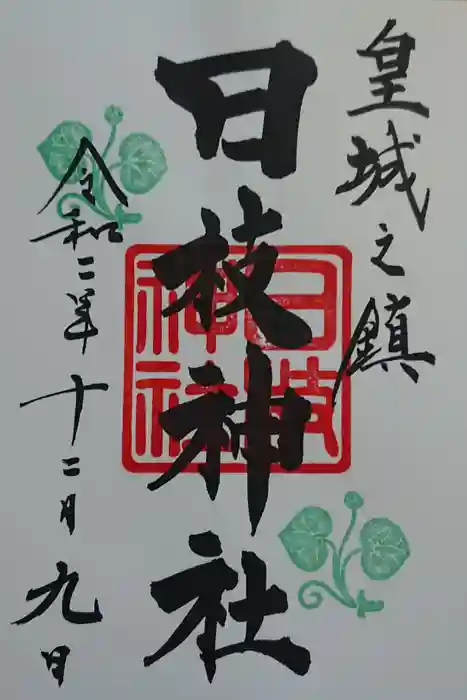 皇城之鎮
日枝神社
日枝神社
令和二年十二月九日